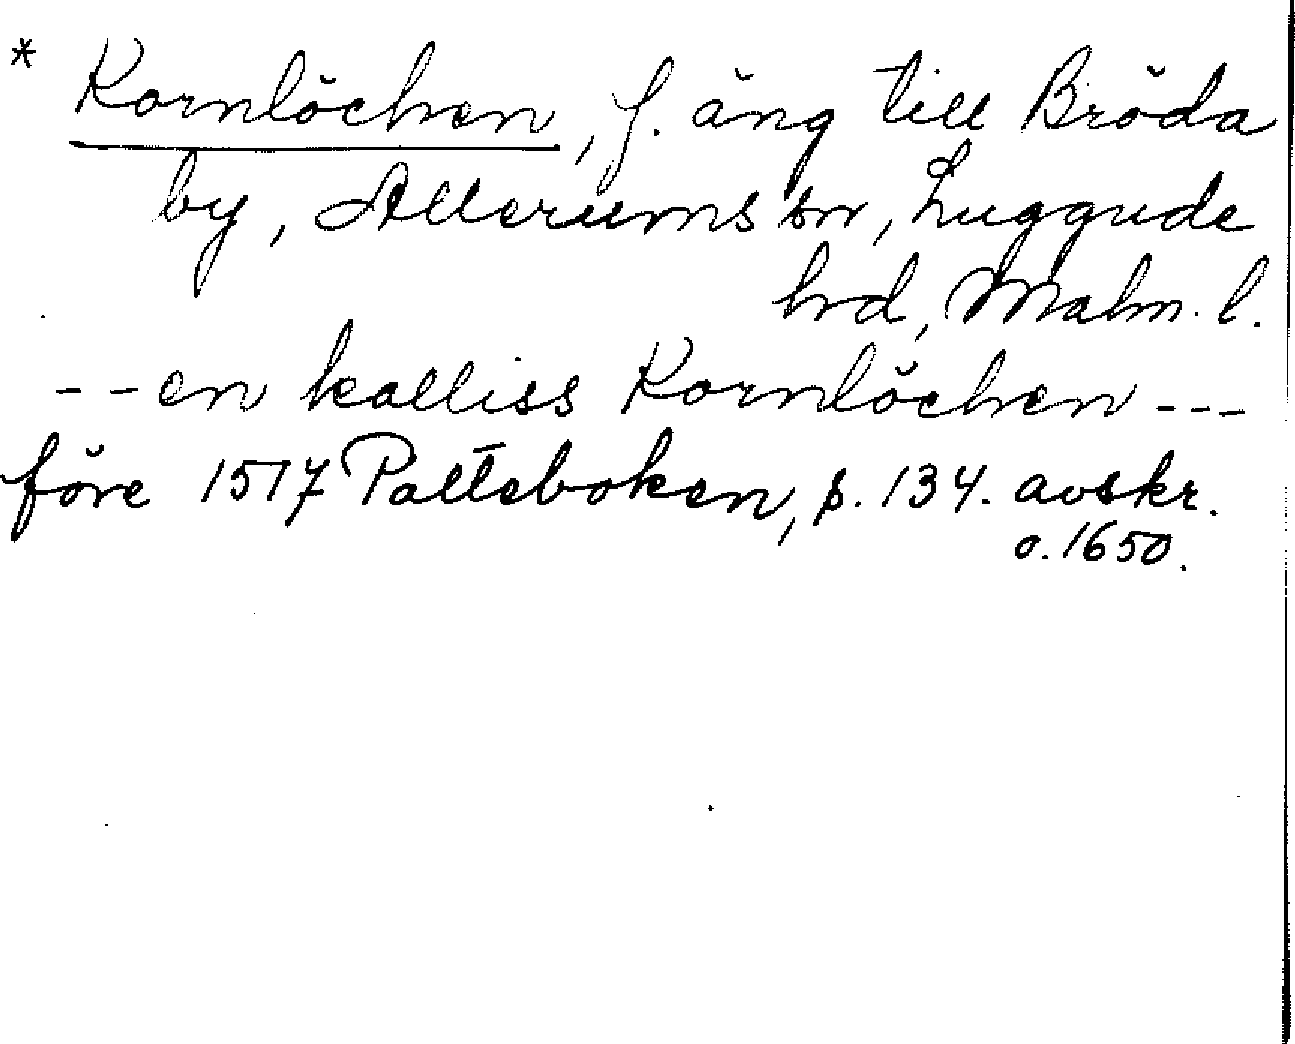 * Kornlöchen, f. äng till Bröda
by, Allerums sn, Luggude
hd, Malm. l.
-- en kalliss Kornlöchen ---
före 1517 Palteboken, s. 134. avskr.
o. 1650.